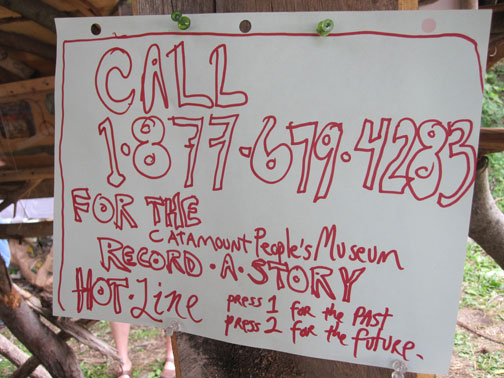 CALL
1·877·679·4283
FOR THE
CATAMOUNT People's Museum
RECORD·A·STORY
HOT·Line
press 1 for the past
press 2 for the future.